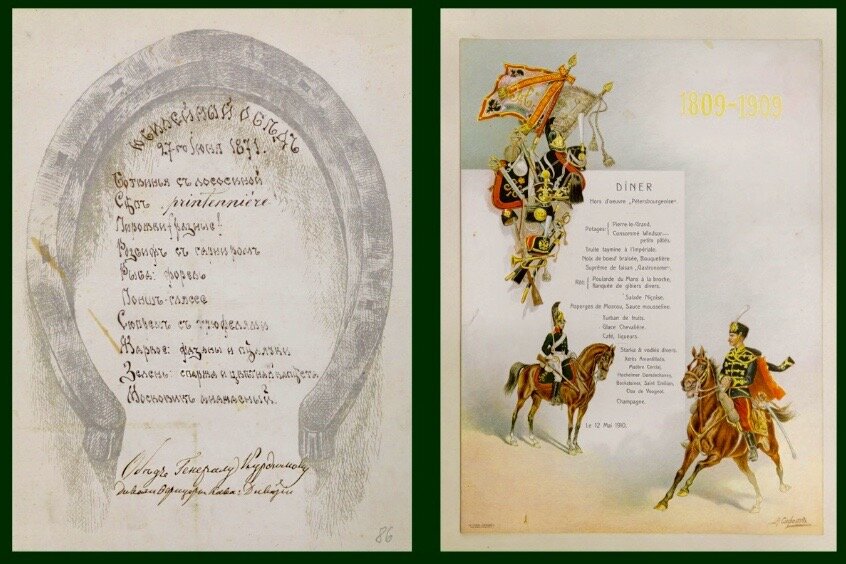 Юбилейный Обѣдъ
27го Іюня 1871.
Ботвинья съ лососиной
Супъ printannière
Пирожки разные!
Розбифъ съ гарниромъ
Рыба: форель
Пончъ-гляссе
Сюпремъ съ трюфелями
Жаркое: фазаны и пулярки
Зелень: спаржа и цвѣтная капуста
Московикъ ананасный.
Обѣдъ Генералу
86
1809-1909
DÎNER
Hors d'oeuvre „Pétersbourgeoise"
Potages: Pierre-le-Grand.
Consommé Windsor—
petits pâtés.
Truite saymine à l'Impériale.
Noix de boeuf braisée, Bouquetière.
Suprême de faisan „Gastronome".
Rôti Poularde du Mans à la broche,
flanquée de gibiers divers.
Salade Niçoise.
Asperges de Moscou, Sauce mousseline.
Turban de fruits.
Glace Chevalière.
Café, liqueurs.
Starka & vodkis divers.
Xérès Amontillado.
Madère Cordaj.
Hochheimer Domdechaney.
Berncasteler. Saint Emilion.
Clos de Vougeot.
Champagne.
Le 12 Mai 1910.